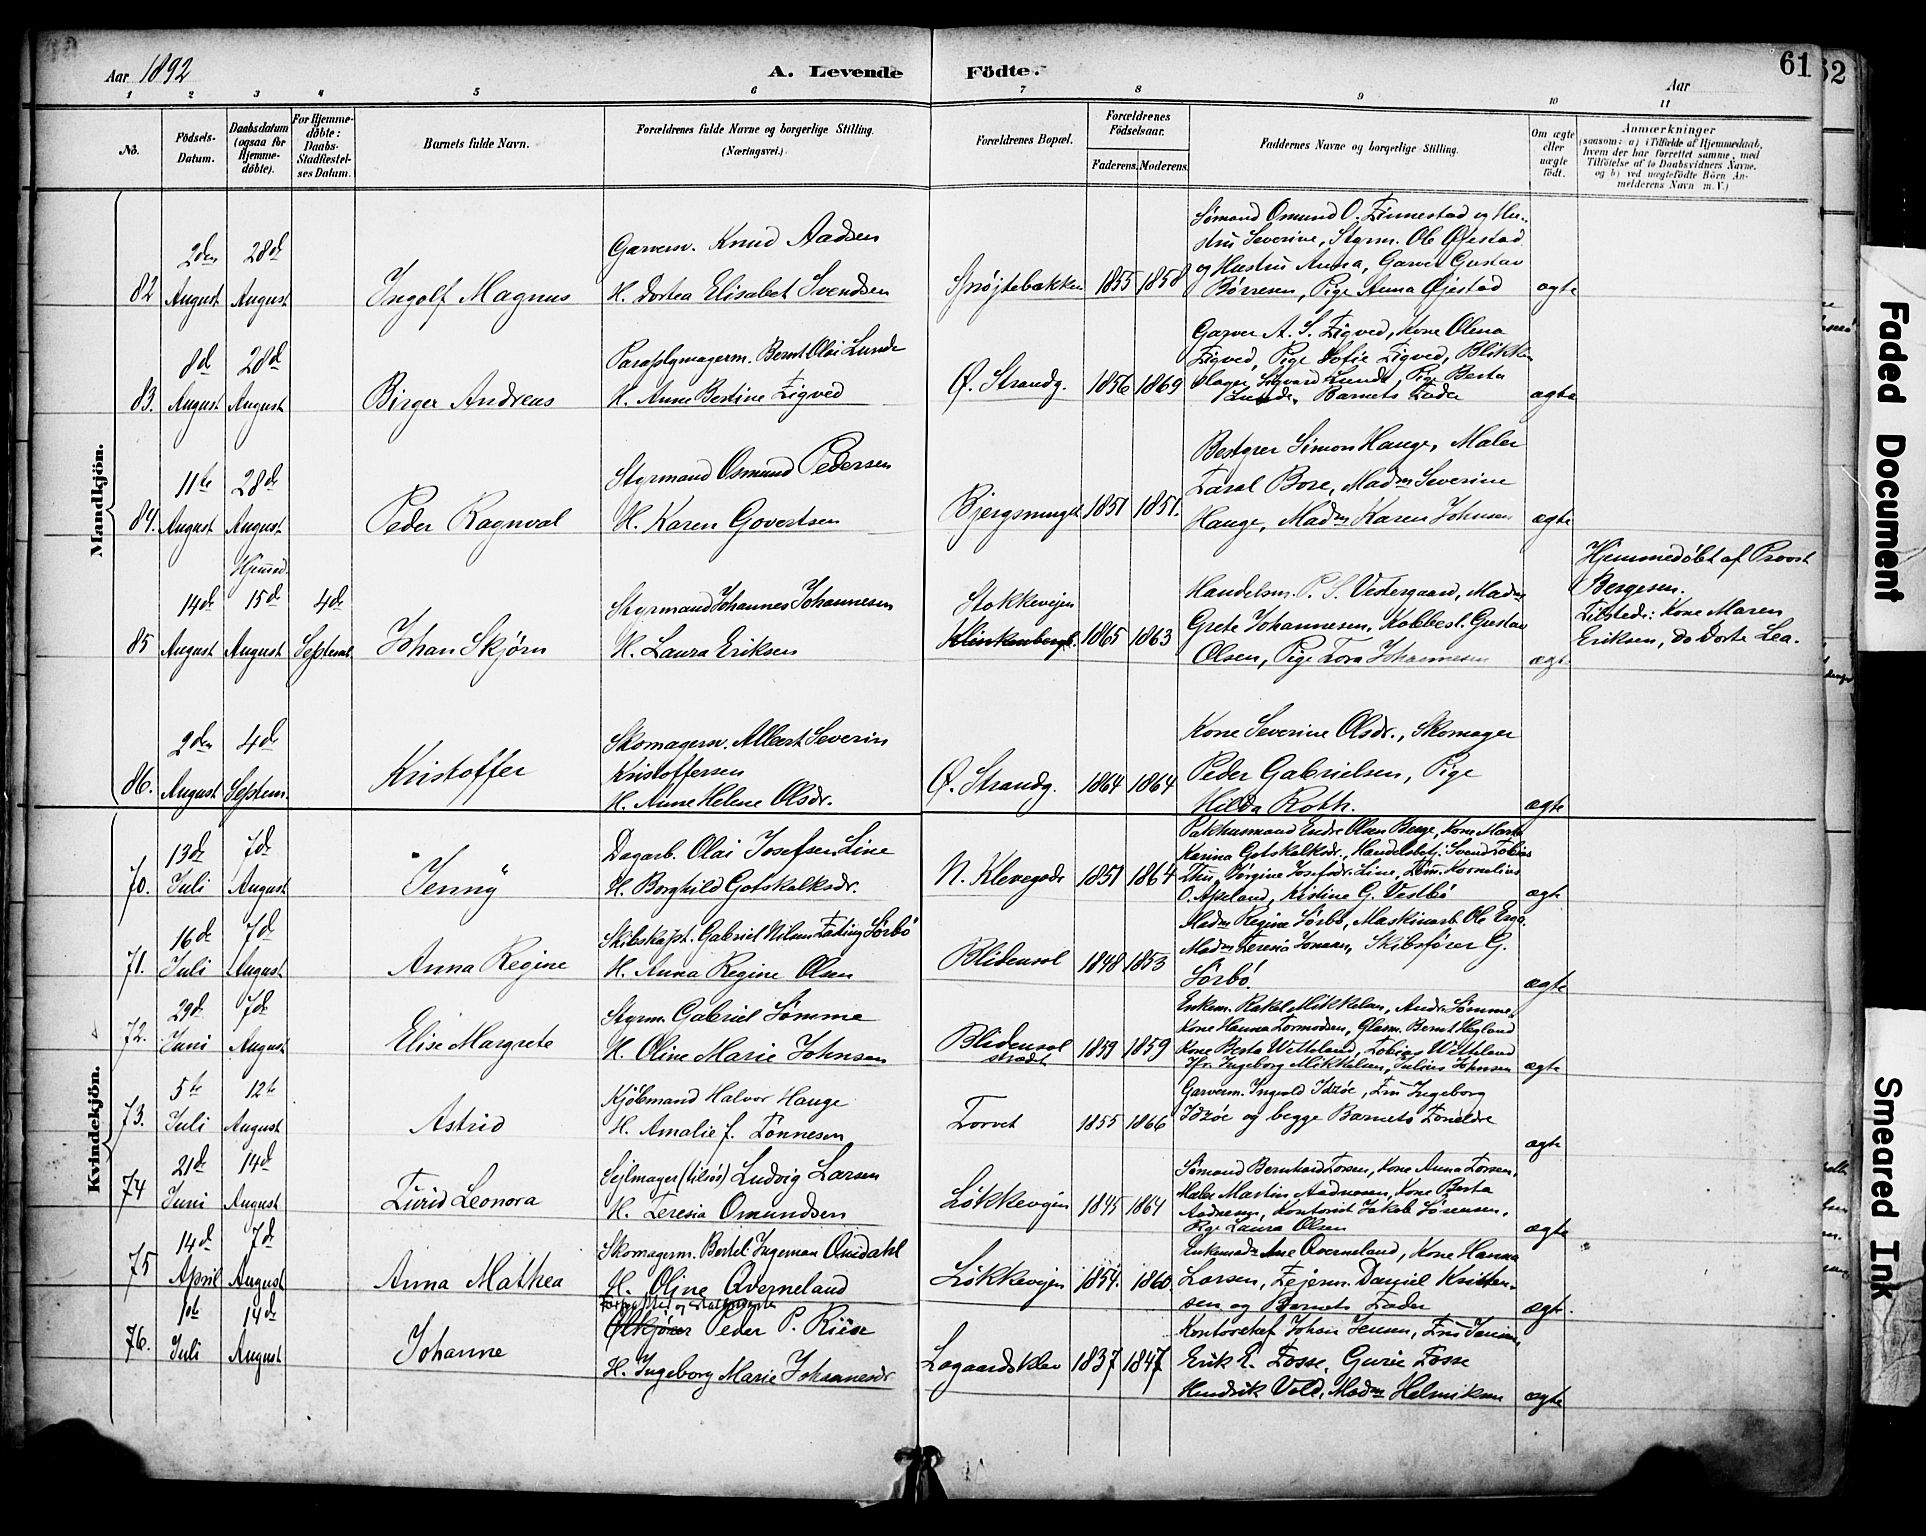 Aar 1892
A. Levende Födte.
61
Aar
62
1 2 3 4 5 6 7 8 9 10 11
No.
Födsels-Datum.
Daabsdatum (ogsaa for Hjemme-döbte).
For Hjemme-döbte: Daabs-Stadfæstel-ses Datum.
Barnets fulde Navn.
Forældrenes fulde Navne og borgerlige Stilling.
(Næringsvei.)
Forældrenes Bopæl.
Forældrenes Födselsaar.
Faderens. Moderens.
Faddernes Navne og borgerlige Stilling.
Om ægte eller uægte födt.
Anmærkninger
(saasom: a) i Tilfælde af Hjemmedaab,
hvem der har forrettet samme, med
Tilföielse af to Daabsvidners Navne,
og b) ved uægtefödte Börn An-
melderens Navn m. V.)
Mandkjön.
82 2den August 28de August
Ingolf Magnus
Garverm. Knud Aadsen
H. Dortea Elisabet Svendsen
Sprøjtebakken 1855 1858
Sömand Omund O. Finnestad og Hu-
stru Severine, Styrm. Ole Øfestad
og Hustru Anna, Garver Gustav
Børresen, Pige Anna Øjestad
ægte
83. 8de August 28de August
Birger Andreas
Paraplymagerm. Bernt Olai Lunde
H. Anne Bertine Zigved
Ø. Strandg. 1856 1869
Garver A. S. Zigved, Kone Olena
Zigved, Pige Sofie Zigved, Blikken
slager Sigvard Lunde, Pige Berta
Lunde, Barnets Fader
ægte
84. 11te August 28de August
Peder Ragnval
Styrmand Osmund Pedersen
H. Karen Govertsen
Bjergsmuget 1851 1851.
Bestyrer Simon Hauge, Maler
Taral Bore, Madm Severine
Hauge, Madm Karen Johnsen
ægte
85 14de August Hjemmed. 15de August 4de Septemb.
Johan Skjörn
Styrmand Johannes Johannesen
H. Laura Eriksen
Stokkevejen
Klinkenbergb. 1865 1863
Handelsm. P. S. Vestergaard, Madm
Grete Johannesen, Kobbesl. Gustav
Olsen, Pige Tora Johannesen
ægte
Hjemmedöbt af Provst
Bergesen.
Tilsted: Kone Maren
Eriksen, Do Dorte Lea.
86. 2den August 4de Septem.
Kristoffer
Skomagersv. Albert Severin
Kristoffersen
H. Anne Helene Olsdr.
Ø. Strandg. 1864 1864
Kone Severine Olsdr., Skomager
Peder Gabrielsen, Pige
Hilda Roth.
ægte
Kvindekjön.
70. 13de Juli 7de August
Jenny
Dagarb. Olai Josefsen Line
H. Borghild Gotskalksdr.
N. Klevegade 1851 1864
Pakhusmand Endre Olsen Berge, Kone Marta
Karina Gotskalksdr., Handelsbetj. Svend Tobias
Jörgine Josefsdr. Line, Töm. Kornelius
O. Apeland, Kistine G. Vestbö
ægte
71. 16de Juli 7de August
Anna Regine
Skibskapt. Gabriel Nilsen Sörbö
H. Anna Regine Olsen
Blidensol 1848 1853
Madm Regine Sörbö, Maskinarb. Ole
Madm Teresia Jonasen, Skibsförer G.
Sörbö
ægte
72. 29de Juni 7de August
Elise Margrete
Styrm. Gabriel Sömme
H. Oline Marie Johnsen
Blidensol
strædt 1859 1859
Enkem. Rakel Mikkelsen, Andr. Sömme,
Kone Hanna Tormodsen, Glasm. Bernt Hegland
Kone Berta Wetteland, Tobias Wetteland
Jfr. Ingeborg Mikkelsen, Julius Johnsen
ægte
73. 5te Juli 12te August
Astrid
Kjöbmand Halvor Hauge
H. Amalie f. Tönnesen
Torvet 1855 1866
Garverm. Ingvald Idzøe, Fru Ingeborg
Idzøe og begge Barnets Foreldre
ægte
74 21de Juni 14de August
Turid Leonora
Sejlmager (tilsös) Ludvig Larsen
H. Teresia Omundsen
Lökkevejen 1845 1864
Sömand Bernhard Torsen, Kone Anna Torsen,
Maler Martin Aadnesen, Kone Berta
Aadnesen, Kontorist Jakob Sörensen,
Pige Laura Olsen
ægte
75 14de April 7de August
Anna Mathea
Skomagerm. Bertel Ingeman Omdahl
H. Oline Qverneland
Lökkevejen 1854. 1860
Enkemadm Ane Qverneland, Kone Hanna
Larsen, Fejerm. Daniel Kristen-
sen og Barnets Fader
ægte.
76. 1ste Juli 14de August
Johanne
Peder P. Riise
H. Ingeborg Marie Johannesdr
Lagaardsklev 1837 1847
Kontorchef Johan Jensen, Fru Jensen,
Erik E. Fosse, Gurie Fosse
Hendrik Vold, Madm Helmiksen
ægte
Faded Document
Smeared Ink